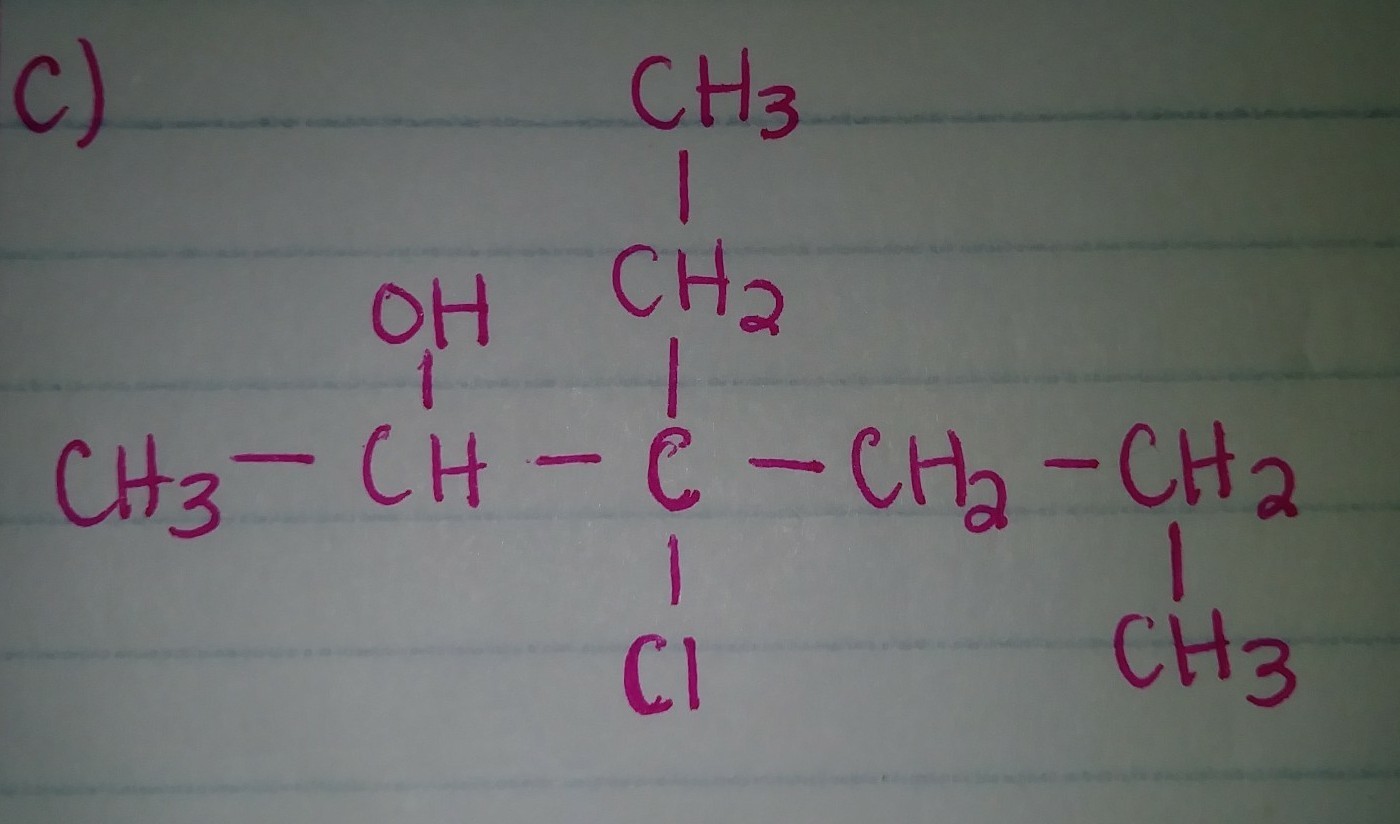 C)
CH3
|
CH2
OH
|
|
CH3 — CH — C — CH2 — CH2
|
|
Cl
CH3